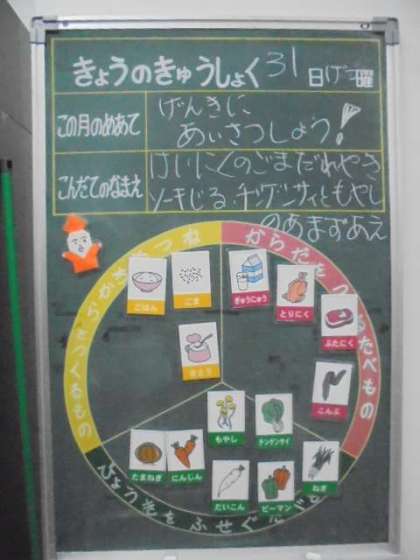 きょうのきゅうしょく 31日げつ曜
この月のめあて
げんきに
あいさつしょう！
こんだてのなまえ
はいにくのごまだれやき
ソーキじる、チンゲンサイともやし
のあまずあえ
ねつやちからをつくるもの
からだをつくるたべもの
びょう気をふせぐたべもの
ごはん
ごま
さとう
ぎゅうにゅう
とりにく
ぶたにく
こんぶ
もやし
チンゲンサイ
ねぎ
たまねぎ
にんじん
だいこん
ピーマン